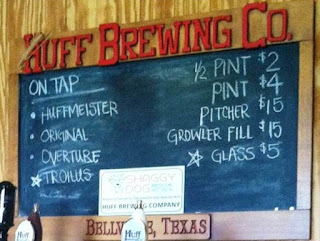 HUFF BREWING CO.
ON TAP
• HUFFMEISTER
• ORIGINAL
• OVERTUBE
☆ TROILUS
½ PINT $2
PINT $4
PITCHER $15
GROWLER FILL $15
☆ GLASS $5
SHAGGY
DOG
HUFF BREWING COMPANY
BELLVILLE, TEXAS
Huff
Huff